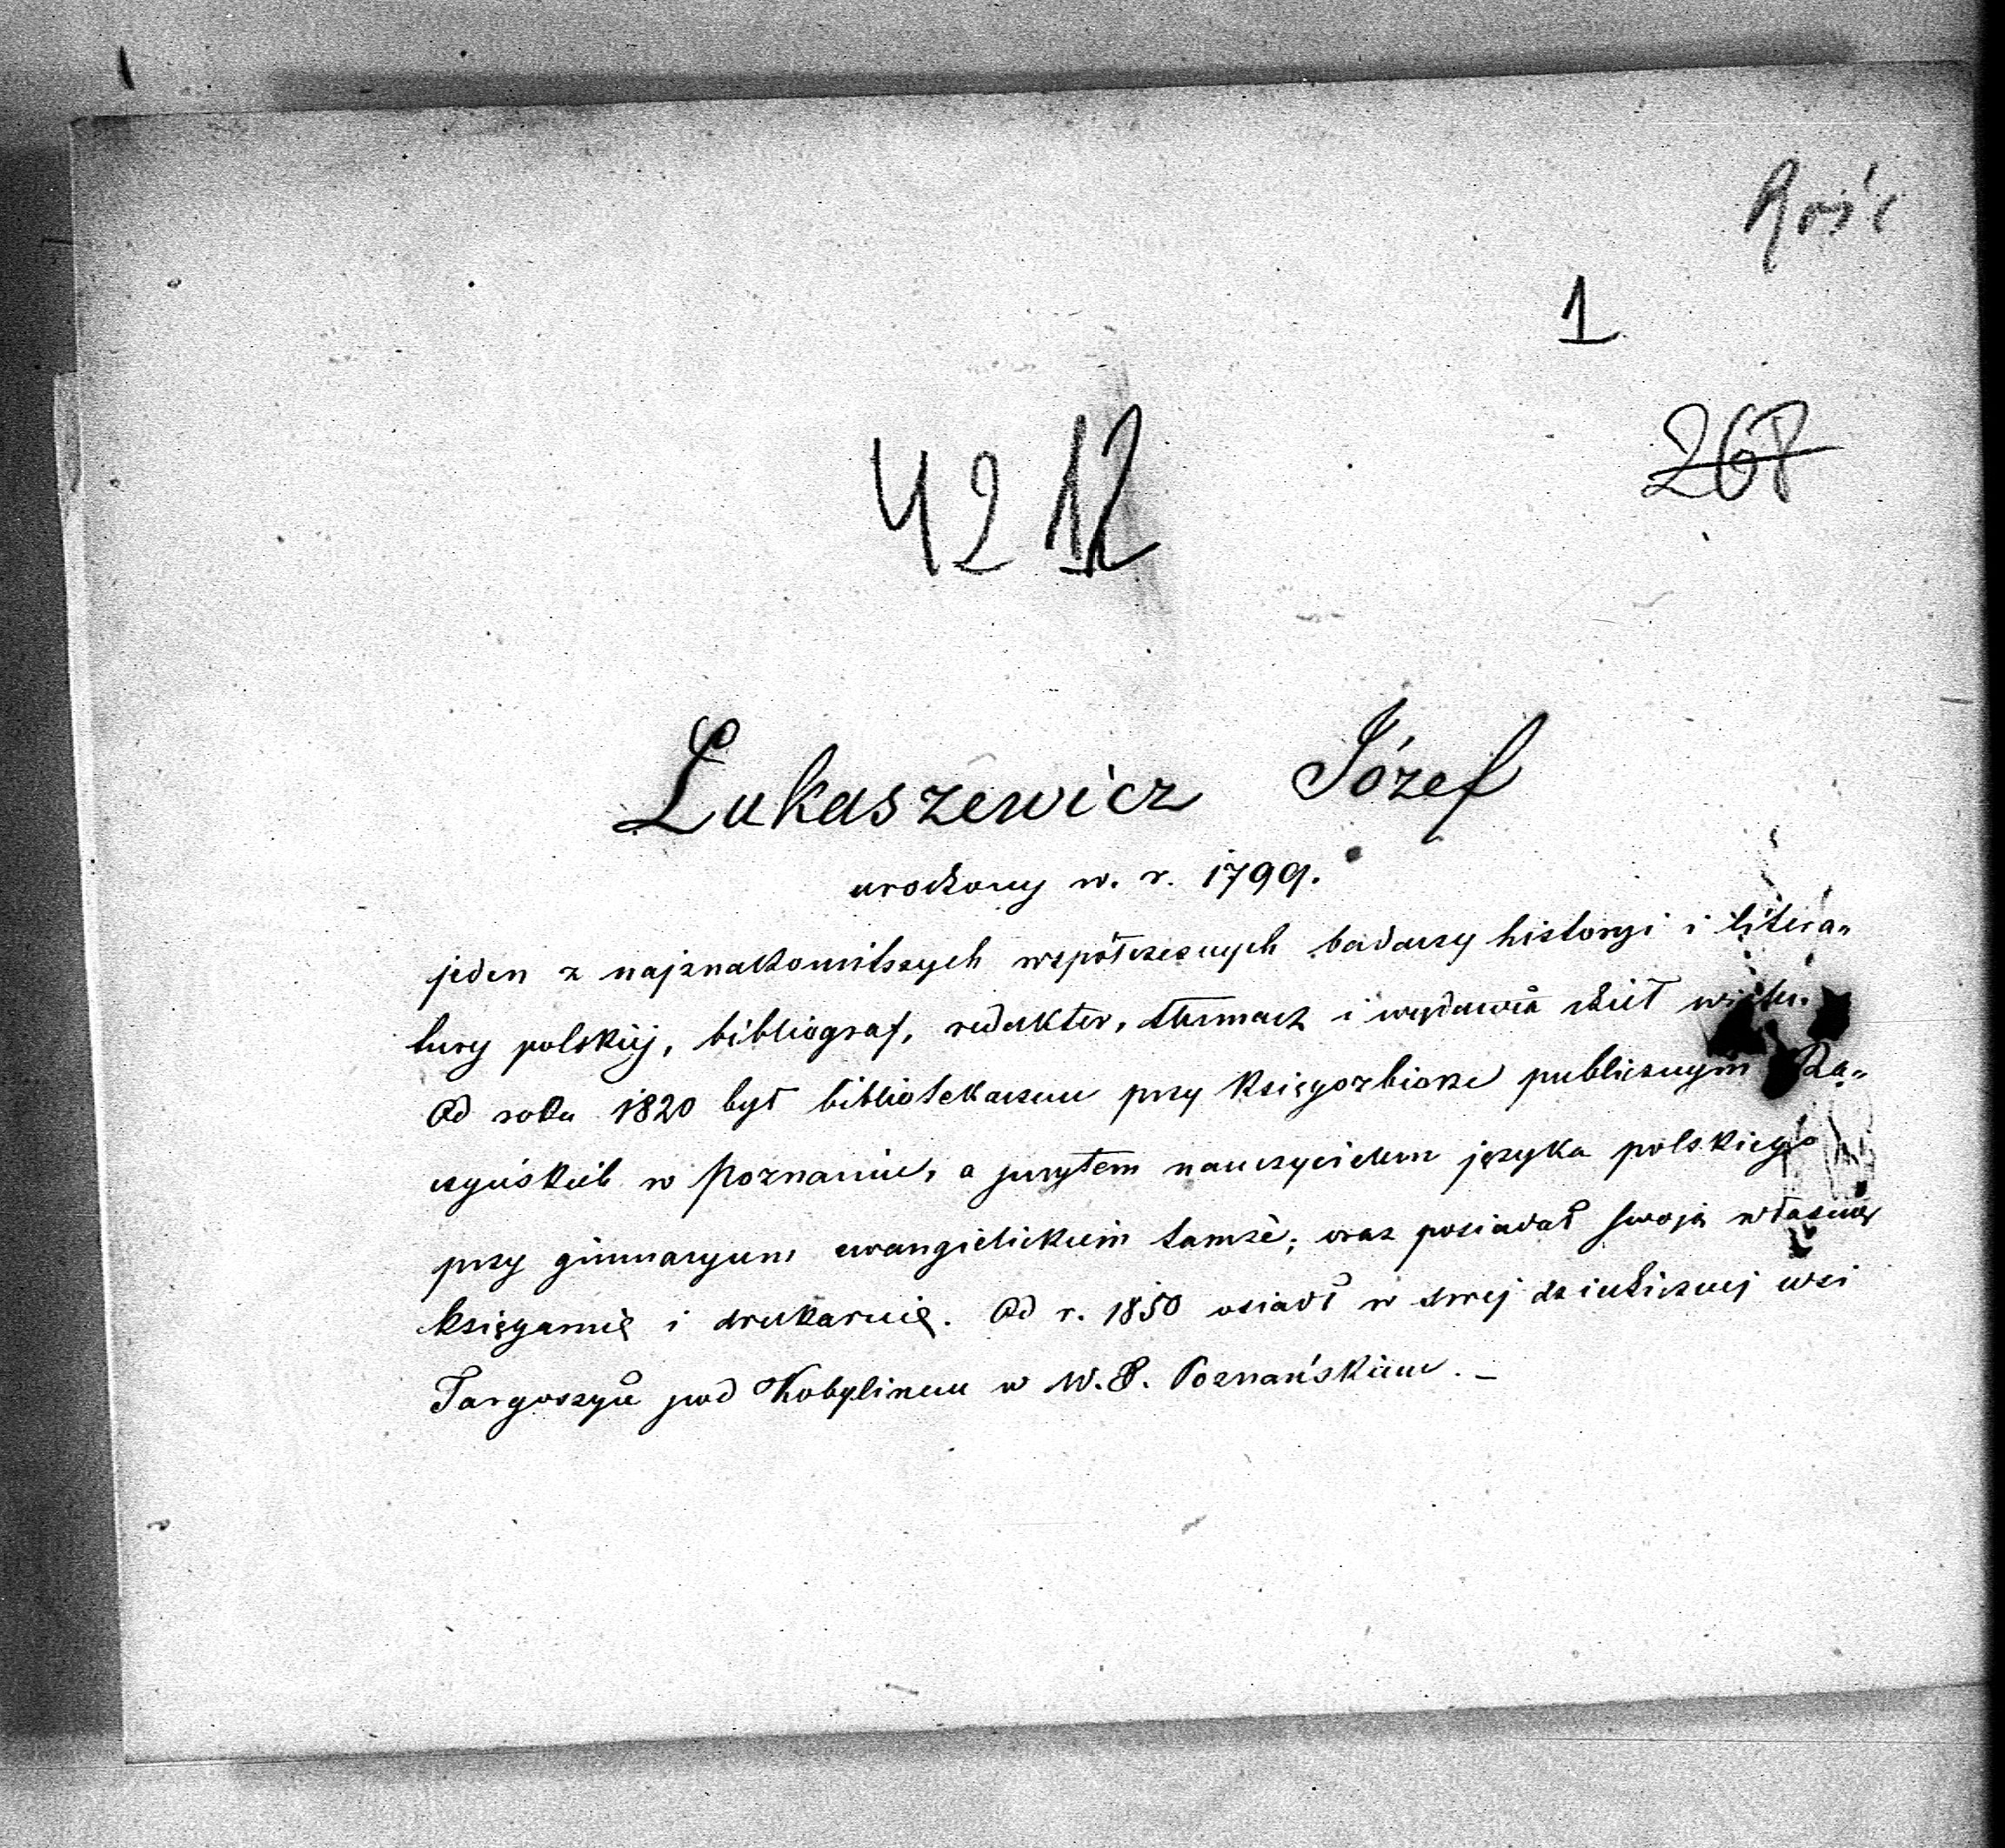 Rość
1
4212
268
Łukaszewicz Józef
urodzony w. r. 1799.
jeden z najznakomitszych współczesnych badaczy historyi i litera„
tury polskiéj, bibliograf, redaktor, tłumacz i wydawca dzieł wielu.
Od roku 1820 był bibliotekarzem przy księgozbiorze publicznym Ra„
czyńskich w Poznaniu, a przytem nauczycielem języka polskiego
przy gimnazyum ewangielickiem tamże; oraz posiadał swoją własną
księgarnię i drukarnię. Od r. 1850 osiadł w swej dziedzicznej wsi
Targoszyce pod Kobylinem w W. P. Poznańskiem. –